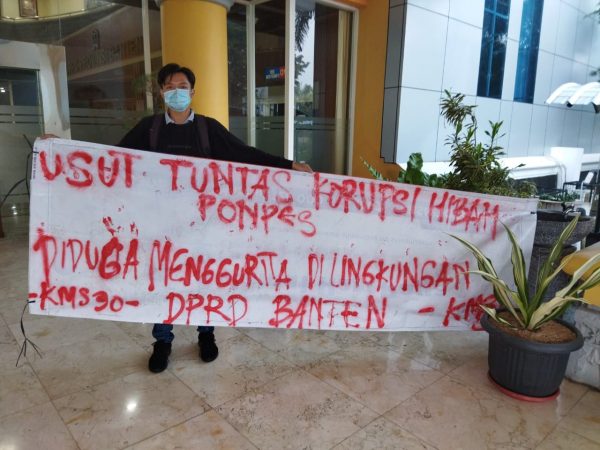 USUT TUNTAS KORUPSI HIBAH
PONPES
DIDUGA MENGGURITA DI LINGKUNGAN
-KMS30- DPRD BANTEN - KMS